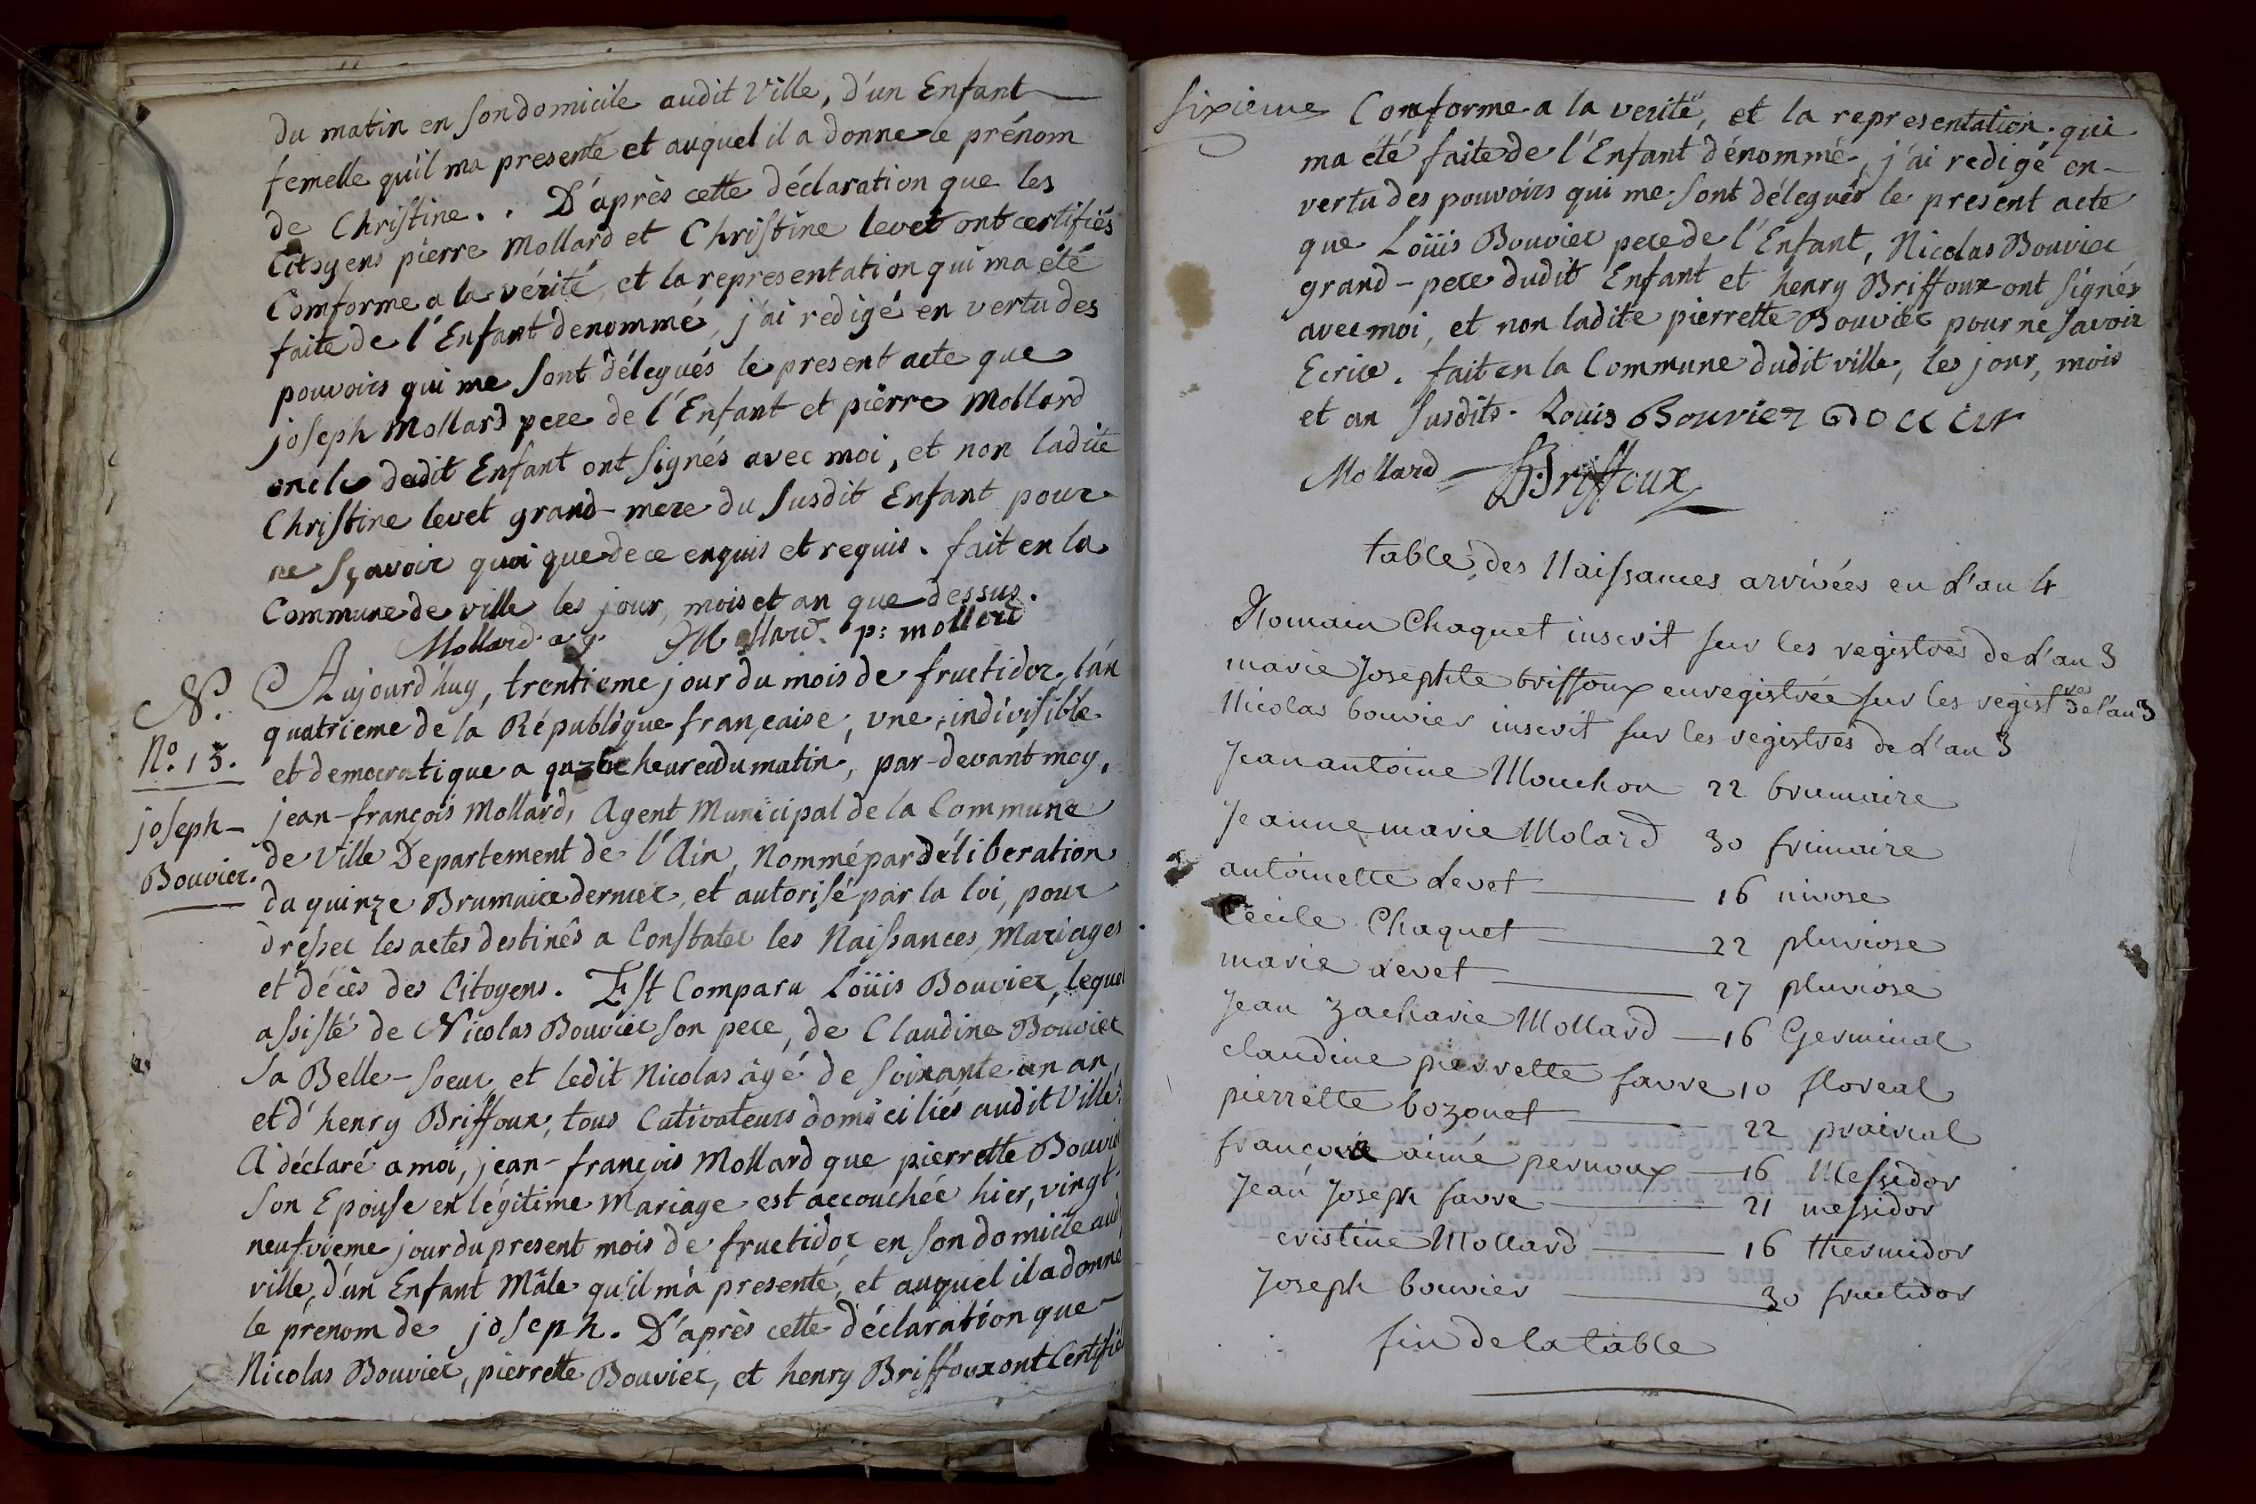 du matin en son domicile audit Ville, d'un Enfant
femelle qu'il ma presenté et auquel il a donne le prénom
de Christine.. D'après cette déclaration que les
Citoyens pierre Mollard et Christine levet ont certifiés
Comforme a la vérité, et la representation qui ma été
faite de l'Enfant denommé, j'ai redigé en vertu des
pouvoirs qui me sont délegués le present acte que
joseph Mollard pere de l'Enfant et pierre Mollard
oncle dudit Enfant ont signés avec moi, et non ladite
Christine levet grand-mere du susdit Enfant pour
ne sçavoir quoi que de ce enquis et requis. fait en la
Commune de ville les jour, mois et an que dessus.
Mollard ag. p: mollard
N.
No. 15.
joseph
Bouvier.
Aujourd'huy, trentieme jour du mois de fructidor, l'an
quatrieme de la République française, une, indivisible
et democratique a quatre heures du matin, par-devant moy,
jean-françois Mollard, Agent Municipal de la Commune
de Ville Departement de l'Ain, Nommé par déliberation
du quinze Brumaire dernier, et autorisé par la loi, pour
dresser les actes destinés a Constater les Naissances, Mariages
et décès des Citoyens. Est Comparu Loüis Bouvier, lequel
assisté de Nicolas Bouvier son pere, de Claudine Bouvier
sa Belle-soeur et ledit Nicolas âgé de soixante un an,
et d'henry Briffoux, tous Cultivateurs domiciliés audit Ville.
A déclaré a moi, jean-françois Mollard que pierrette Bouvier
son Epouse en légitime Mariage est accouchée hier, vingt-
neufvieme jour du present mois de fructidor en son domicile audit
ville, d'un Enfant Mâle qu'il m'a presenté, et auquel il a donné
le prenom de joseph. D'après cette déclaration que
Nicolas Bouvier, pierrette Bouvier, et henry Briffoux ont Certifié
sixieme Comforme a la verité, et la representation qui
ma été faite de l'Enfant dénommé, j'ai redigé en
vertu des pouvoirs qui me sont délegués le present acte
que Loüis Bouvier pere de l'Enfant, Nicolas Bouvier
grand-pere dudit Enfant et henry Briffoux ont signés
avec moi, et non ladite pierrette Bouvier pour ne savoir
Ecrire. fait en la Commune dudit ville, les jour, mois
et an susdits. Louis Bouvier
Mollard Briffoux
table des Naissances arrivées en L'an 4
Romain Chaquet inscrit sur les registres de L'an 3
marie Josephte briffoux enregistrée sur les registres de l'an 3
Nicolas bouvier inscrit sur les registres de L'an 3
Jean antoine Mouchon 22 brumaire
Jeanne marie Molard 30 frimaire
antoinette Levet 16 nivose
Cecile Chaquet 22 pluviose
marie Levet 27 pluviose
Jean Zacharie Mollard 16 Germinal
claudine pierrette favre 10 floreal
pierrette bozonet 22 prairial
françois aimé pernoux 16 Messidor
Jean Joseph favre 21 messidor
cristine Mollard 16 thermidor
Joseph bouvier 30 fructidor
fin de la table